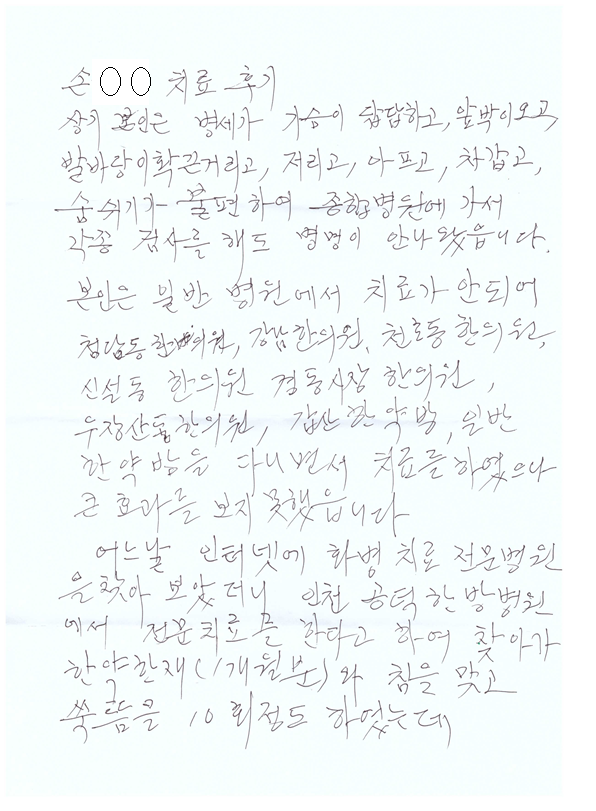 손 ○○ 치료 후기
상기 본인은 병세가 가슴이 답답하고, 압박이오고,
발바랑이화끈거리고, 저리고, 아프고, 차갑고,
숨쉬기가 불편하여 종합병원에 가서
각종 검사를 해도 병명이 안나왔읍니다.
본인은 일반 병원에서 치료가 안되어
청담동한의원, 강남한의원, 천호동한의원,
신설동 한의원 경동시장 한의원,
우장산동한의원, 갑산한약방, 일반
한약방을 다니면서 치료를하였으나
큰 효과를 보지 못했읍니다
어느날 인터넷에 화병치료 전문병원
을찾아 보았더니 인천 공덕한방병원
에서 전문치료를 한다고 하여 찾아가
한약한재(1개월분)와 침을 맞고
쑥뜸을 10회정도 하였는데